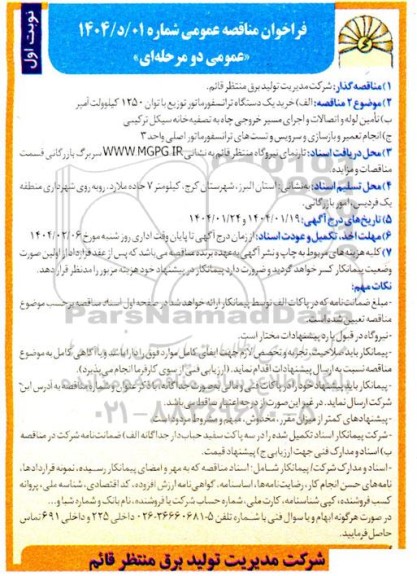 نوبت اول
فراخوان مناقصه عمومی شماره ۰۱/د/۱۴۰۴
«عمومی دو مرحله‌ای»
۱) مناقصه گذار: شرکت مدیریت تولید برق منتظر قائم.
۲) موضوع ۲ مناقصه: الف) خرید یک دستگاه ترانسفورماتور توزیع با توان ۱۲۵۰ کیلوولت آمپر
ب) تأمین لوله و اتصالات و اجرای مسیر خروجی چاه به تصفیه خانه سیکل ترکیبی
ج) انجام تعمیر و بازسازی و سرویس و تست‌های ترانسفورماتور اصلی واحد ۳
۳) محل دریافت اسناد: تارنمای نیروگاه منتظر قائم به نشانی WWW.MGPG.IR سربرگ بازرگانی قسمت
مناقصات و مزایده.
۴) محل تسلیم اسناد: به نشانی: استان البرز، شهرستان کرج، کیلومتر ۷ جاده ملارد، روبه روی شهرداری منطقه
یک فردیس، امور بازرگانی.
۵) تاریخ‌های درج آگهی: ۱۴۰۴/۰۱/۱۹ و ۱۴۰۴/۰۱/۲۴
۶) مهلت اخذ، تکمیل و عودت اسناد: از زمان درج آگهی تا پایان وقت اداری روز شنبه مورخ ۱۴۰۴/۰۲/۰۶
۷) کلیه هزینه‌های مربوط به چاپ و نشر آگهی به عهده برنده مناقصه می‌باشد که پس از عقد قرارداد از اولین صورت
وضعیت پیمانکار کسر خواهد گردید و ضرورت دارد پیمانکار در پیشنهاد خود هزینه مزبور را مدنظر قرار دهد.
نکات مهم:
- مبلغ ضمانت نامه که در پاکات الف توسط پیمانکار ارائه خواهد شد در صفحه اول اسناد مناقصه برحسب موضوع
مناقصه تعیین شده است.
- نیروگاه در قبول یا رد پیشنهادات مختار است.
- پیمانکار باید صلاحیت، تجربه و تخصص لازم جهت ایفای کامل موارد فوق را دارا باشد و با آگاهی کامل به موضوع
مناقصه نسبت به ارسال پیشنهادات اقدام نماید. (ارزیابی فنی از سوی کارفرما انجام می‌پذیرد).
- پیمانکار باید پیشنهاد خود را در پاکات فنی و مالی به صورت جداگانه با ذکر عنوان و شماره مناقصه به آدرس این
شرکت ارسال نماید. در غیر این صورت از درجه اعتبار ساقط می‌باشد.
- پیشنهادهای کمتر از میزان مقرر، مخدوش، مبهم و مشروط مردود است.
- شرکت پیمانکار اسناد تکمیل شده را در سه پاکت سفید حباب‌دار جداگانه الف) ضمانت نامه شرکت در مناقصه
ب) اسناد و مدارک فنی جهت ارزیابی ج) پیشنهاد قیمت.
- اسناد و مدارک شرکت/ پیمانکار شامل: اسناد مناقصه که به مهر و امضای پیمانکار رسیده، نمونه قراردادها،
نامه‌های حسن انجام کار، رضایت نامه‌ها، اساسنامه، گواهی نامه ارزش افزوده، کد اقتصادی، شناسه ملی، پروانه
کسب فروشنده، کپی شناسنامه، کارت ملی، شماره حساب شرکت یا فروشنده، نام بانک و شماره شبا و...
در صورت هرگونه ابهام و یا سوال فنی با شماره تلفن ۵-۳۶۶۶۰۶۸۱-۰۲۶ داخلی ۲۲۵ و داخلی ۶۹۱ تماس
حاصل فرمایید.
شرکت مدیریت تولید برق منتظر قائم
ParsNamadData
۰۲۱-۸۸۳۴۹۶۷۰-۵